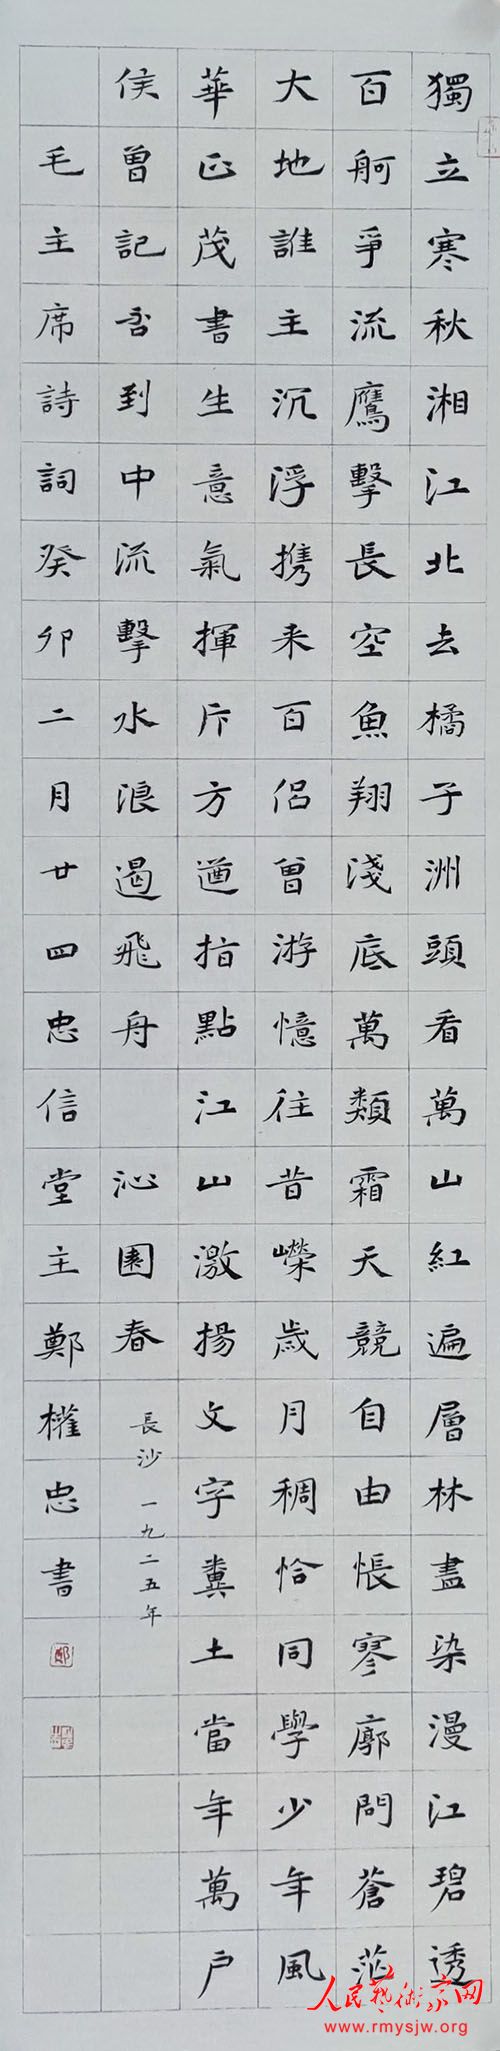 獨立寒秋湘江北去橘子洲頭看萬山紅遍層林盡染漫江碧透
百舸爭流鷹擊長空魚翔淺底萬類霜天競自由悵寥廓問蒼茫
大地誰主沉浮携来百侣曾游憶往昔嶸歲月稠恰同學少年風
華正茂書生意氣揮斥方遒指點江山激揚文字糞土當年萬户
侯曾記否到中流擊水浪遏飛舟 沁園春 長沙 一九二五年
毛主席詩詞癸卯二月廿四忠信堂主鄭權忠書
鄭
人民藝術家网
www.rmysjw.org